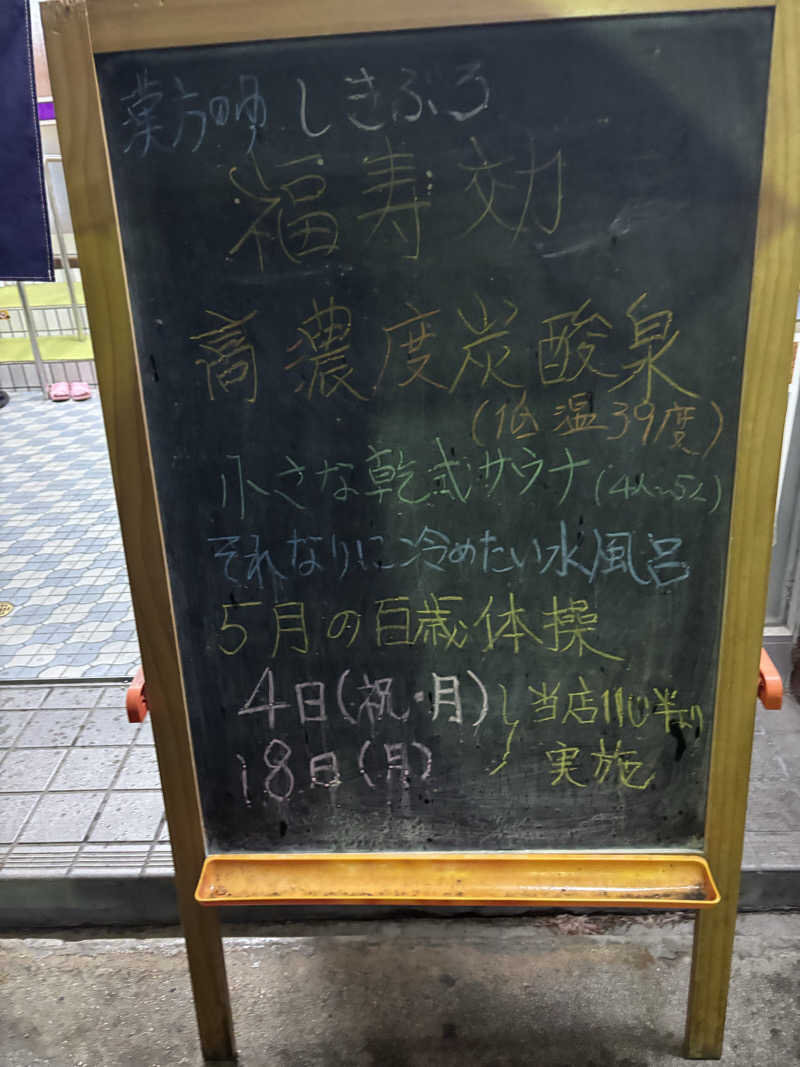 漢方の湯 しきぶろ
福寿効
高濃度炭酸泉
(低温39度)
小さな乾式サウナ(4人〜5人)
それなりに冷めたい水風呂
5月の百歳体操
4日(祝・月) 当店11じ半より
18日(月) 実施